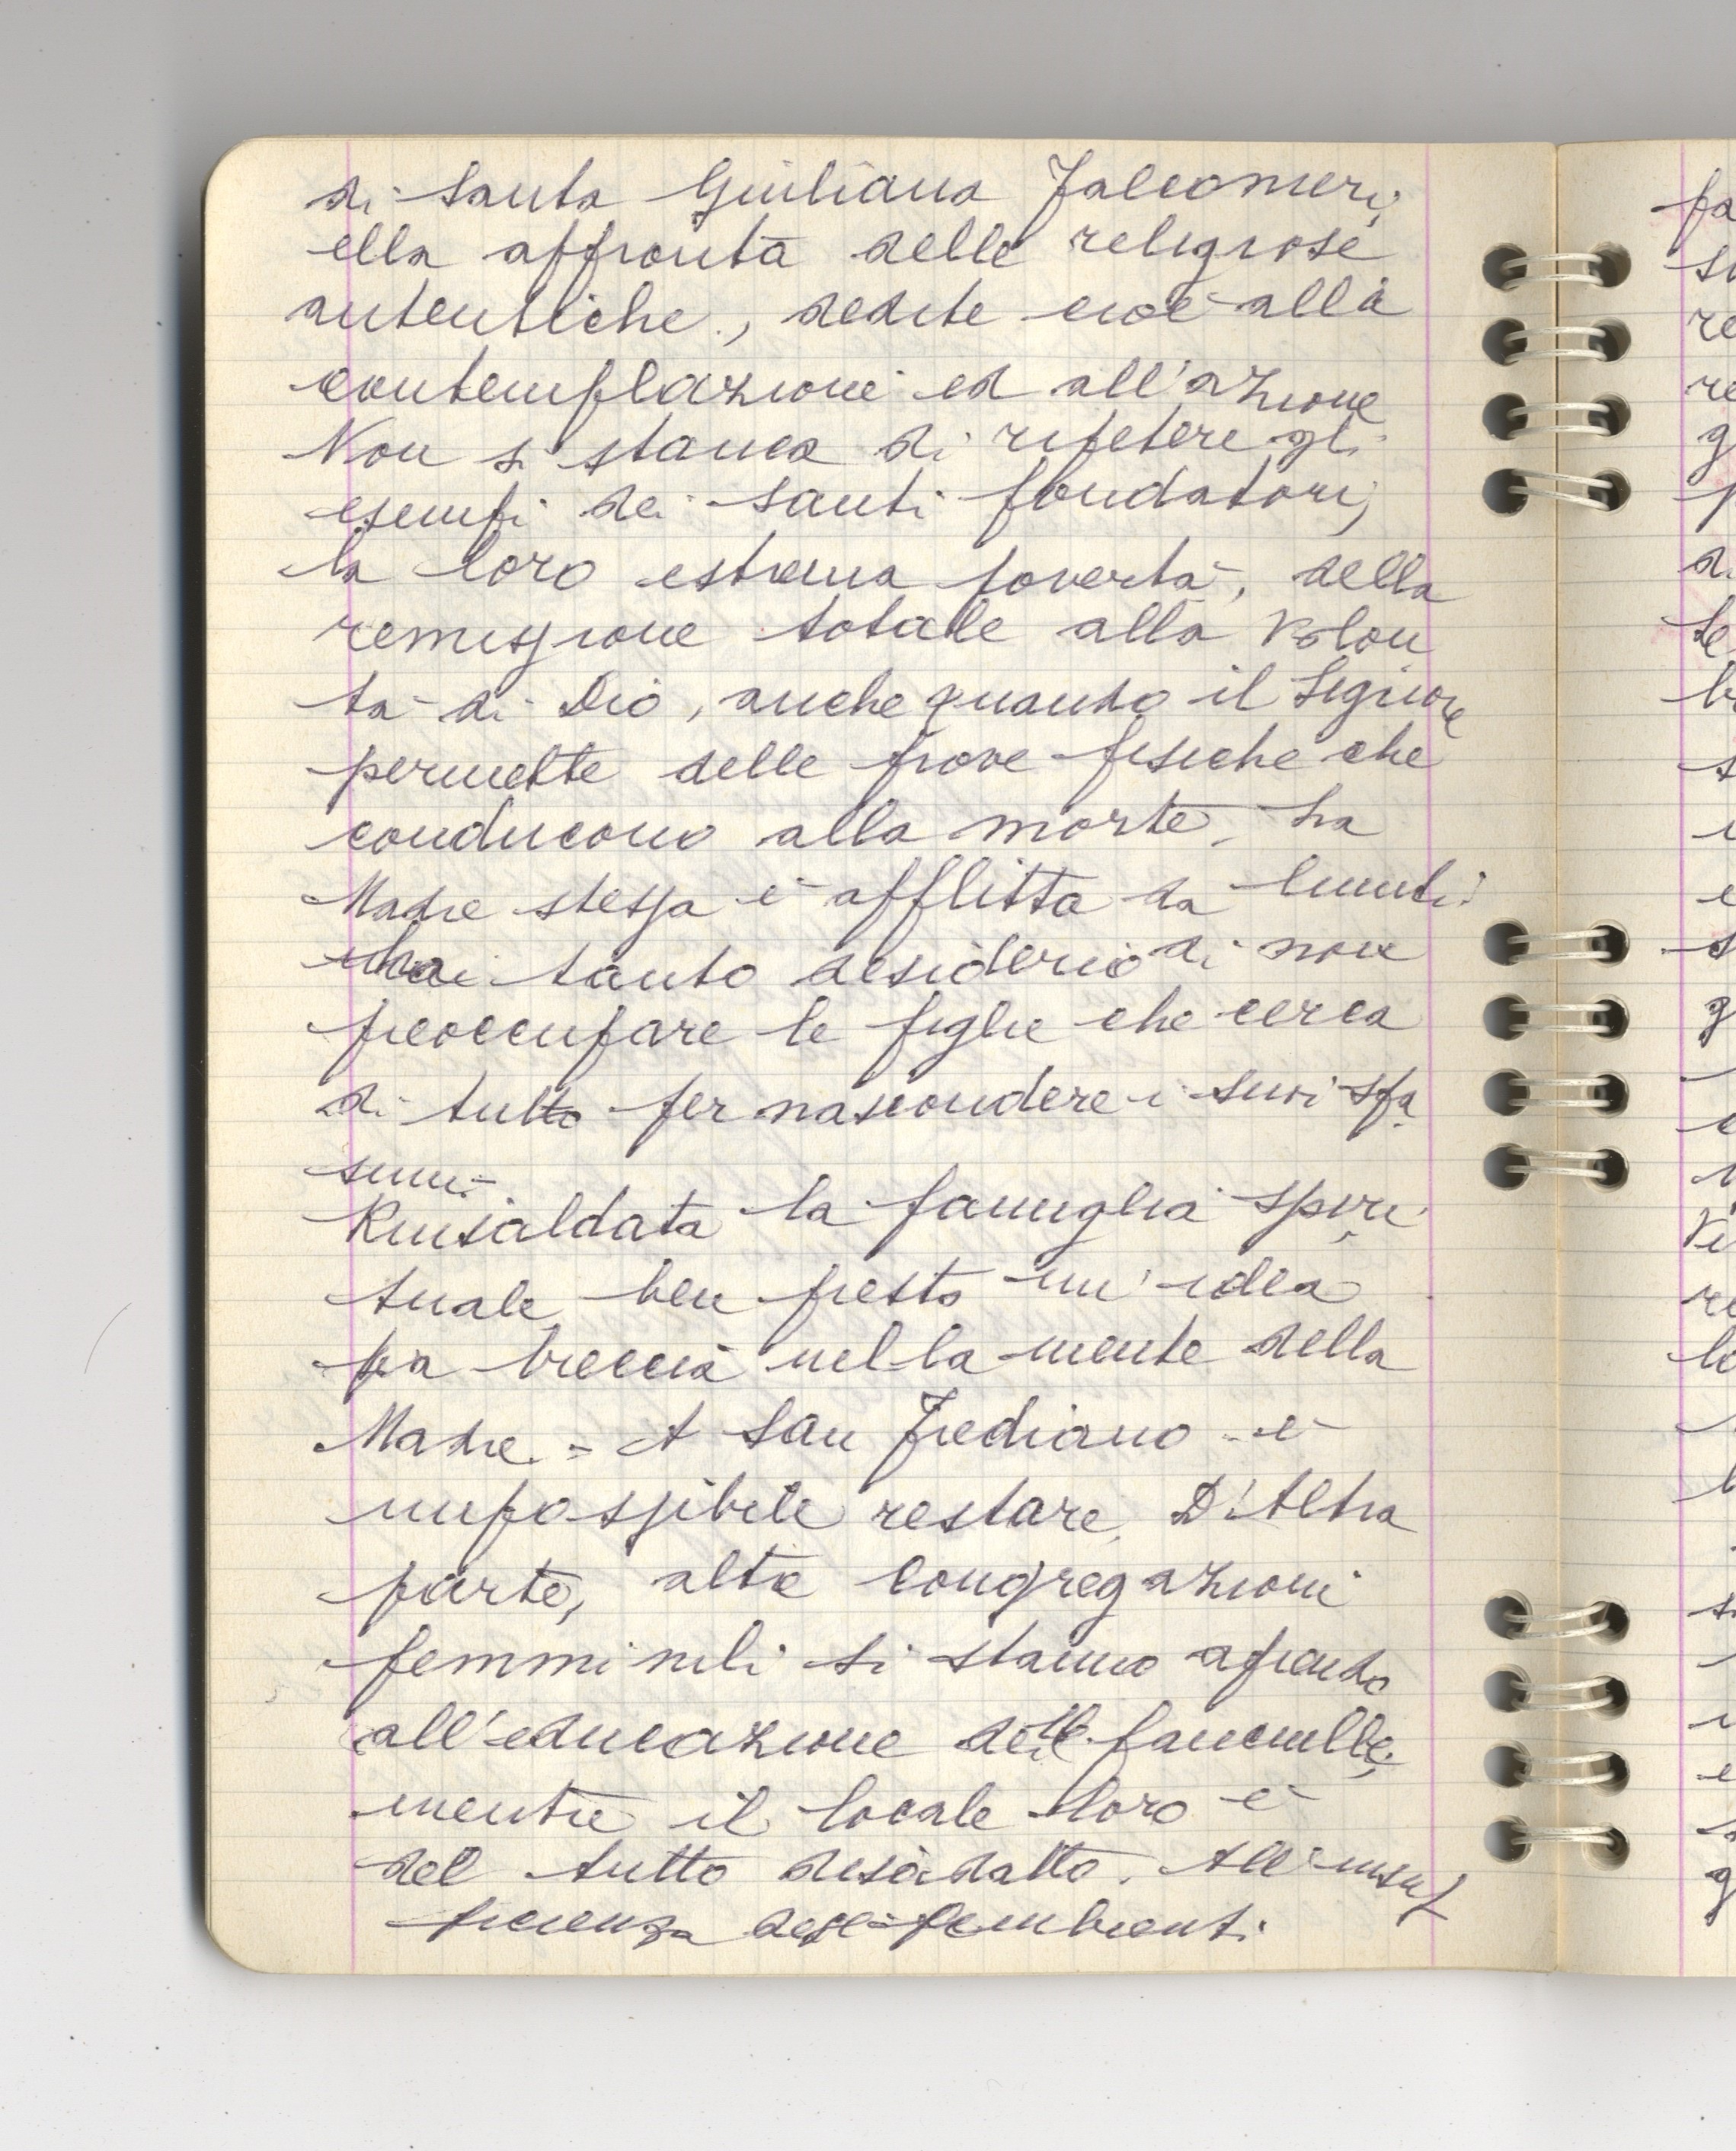 di Santa Giuliana Falconieri,
ella affronta delle religiose
autentiche, dedite cioè alla
contemplazione ed all'azione
Non si stanca di ripetere gli
esempi dei Santi fondatori,
la loro estrema povertà, della
remissione totale alla volon
tà di Dio, anche quando il Signore
permette delle prove fisiche che
conducono alla morte. La
Madre stessa è afflitta da
tanto desiderio di non
preoccupare le figlie che cerca
di tutto per nascondere i suoi spa
simi.
Rinsaldata la famiglia spiri
tuale, ben presto un'idea
fa breccia nella mente della
Madre. - A San Frediano è
impossibile restare. D'Altra
parte, altre Congregazioni
femminili si stanno aprendo
all'educazione delle fanciulle,
mentre il locale loro è
del tutto disadatto. All'insuf
ficienza degli ambienti
fa
re
re
g